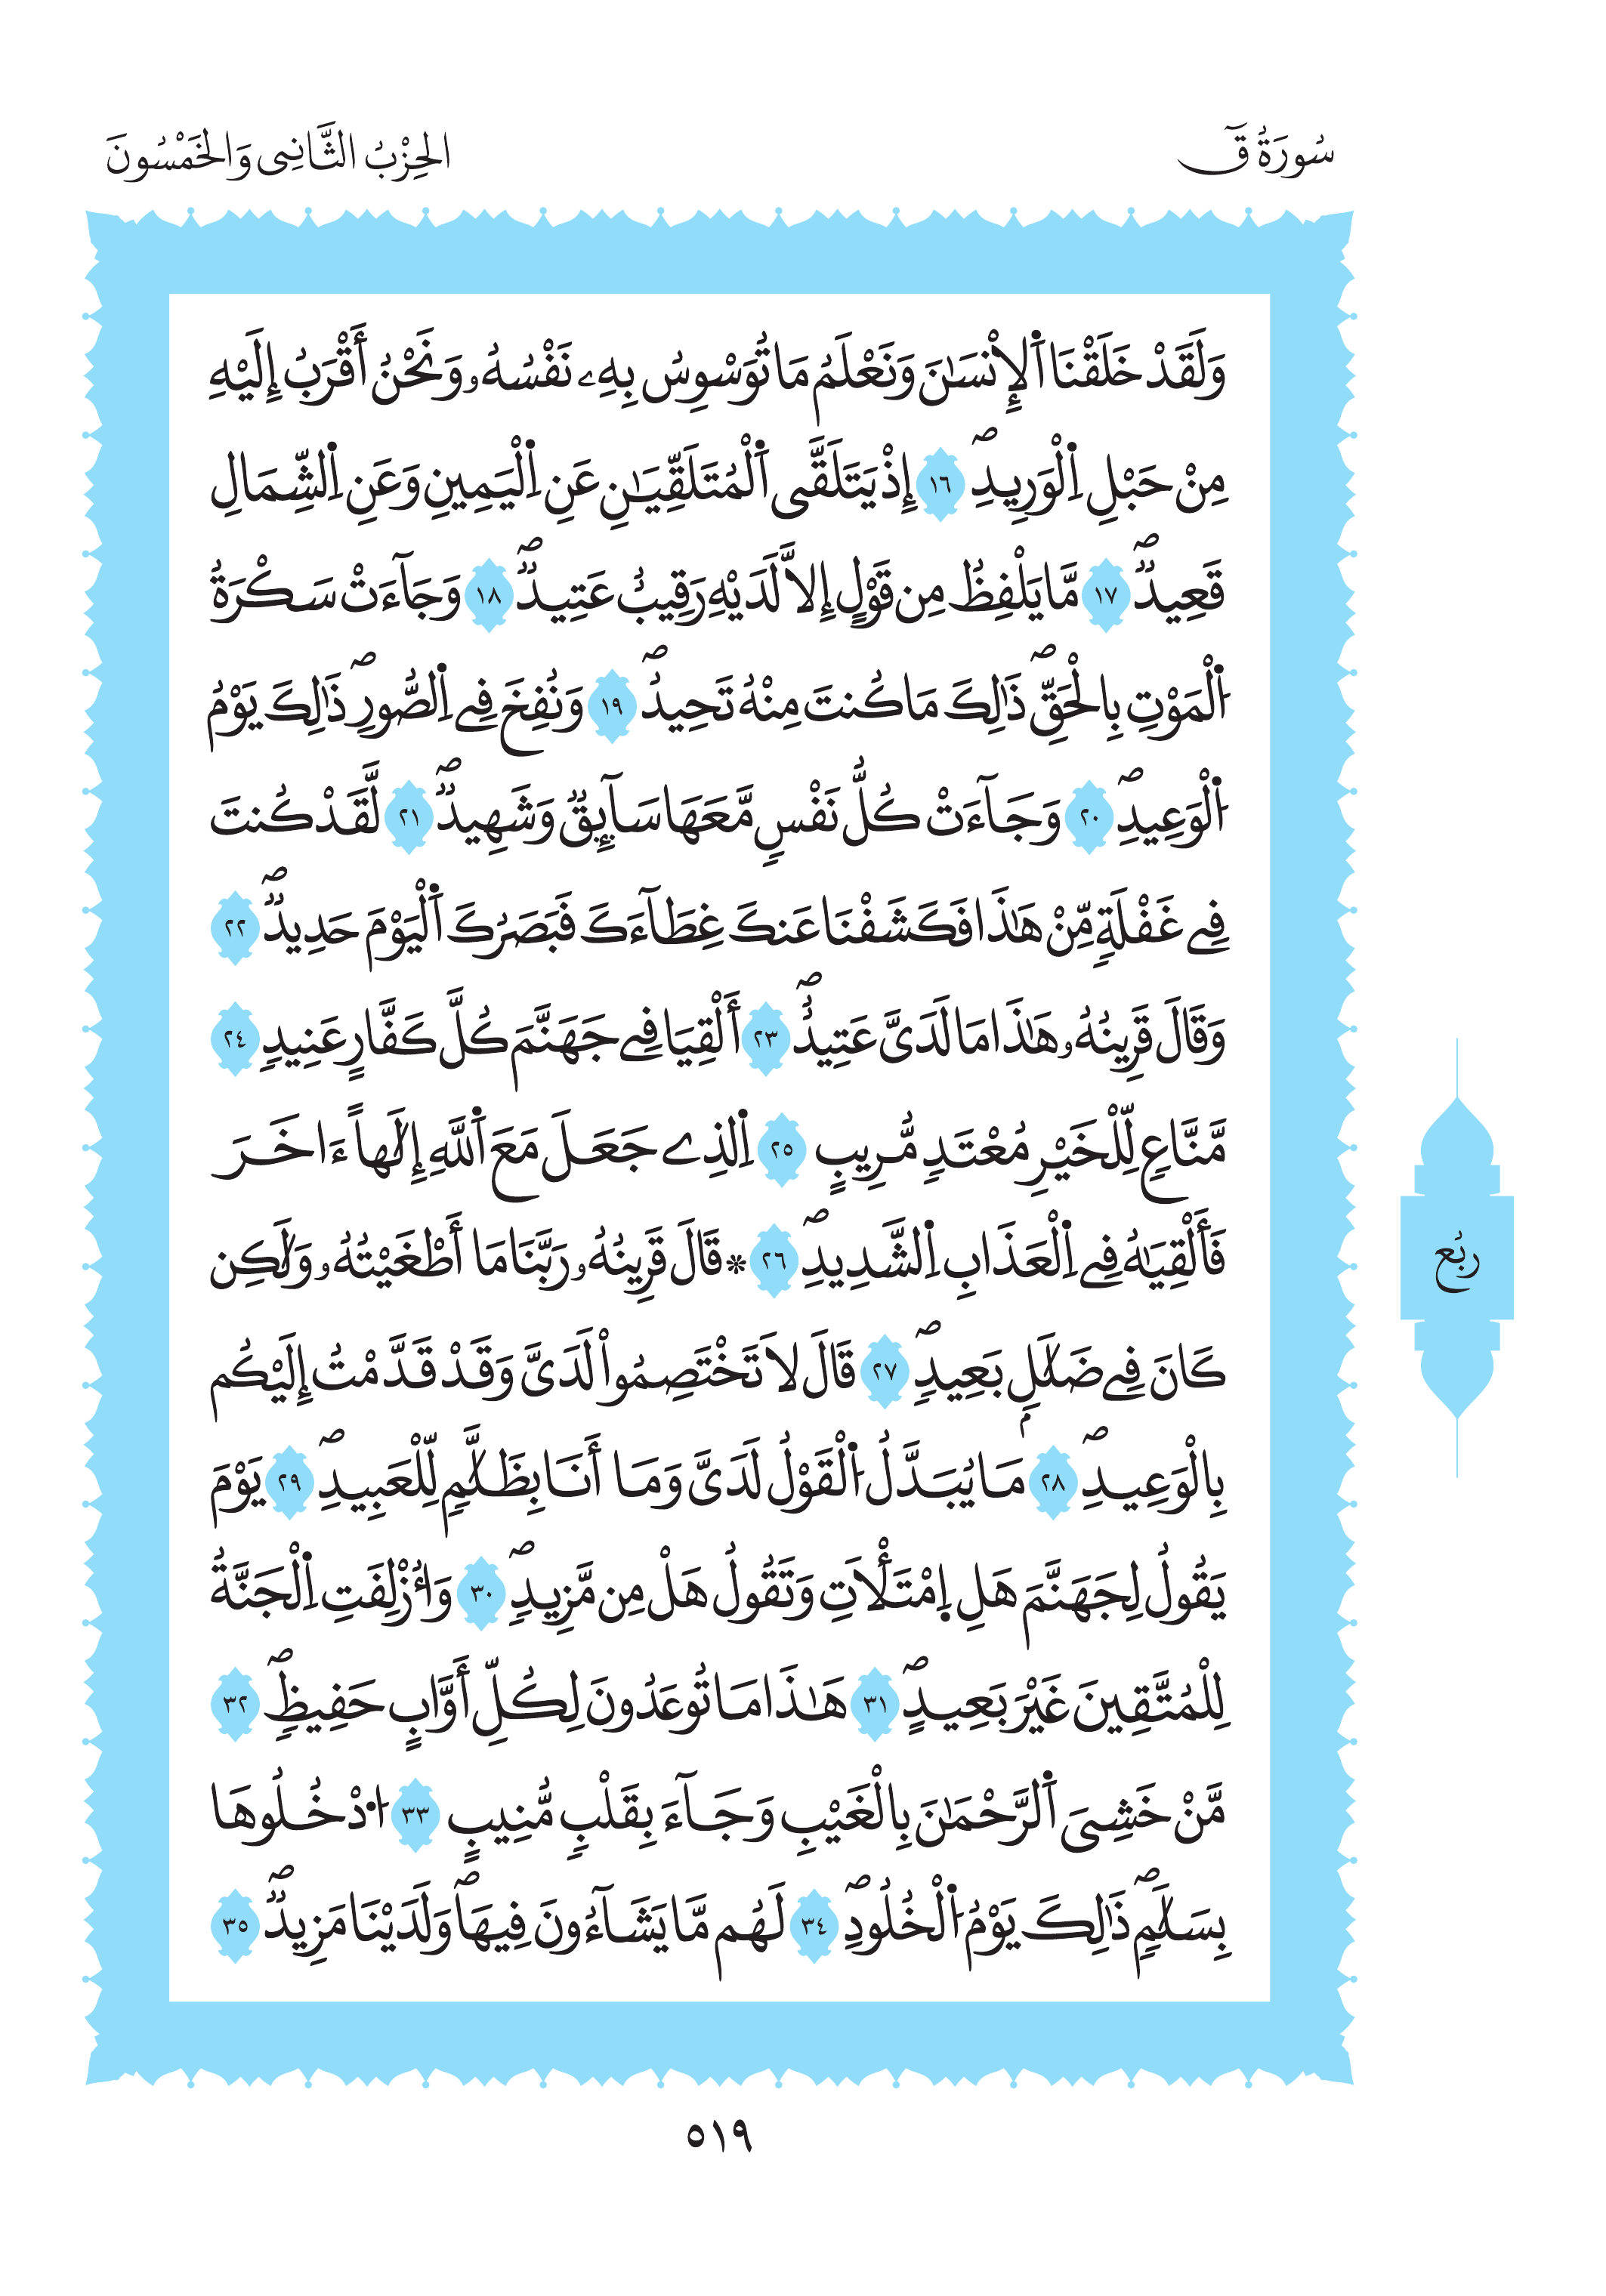 سُورَةُ قٓ
الحِزْبُ الثَّانِي وَالخَمْسُونَ
وَلَقَدْ خَلَقْنَا اَ۬لِانْسَٰنَ وَنَعْلَمُ مَا تُوَسْوِسُ بِهِۦ نَفْسُهُۥ وَنَحْنُ أَقْرَبُ إِلَيْهِ
مِنْ حَبْلِ اِ۬لْوَرِيدِۖ ١٦ إِذْ يَتَلَقَّى اَ۬لْمُتَلَقِّيَٰنِ عَنِ اِ۬لْيَمِينِ وَعَنِ اِ۬لشِّمَالِ
قَعِيدٞۖ ١٧ مَّا يَلْفِظُ مِن قَوْلٍ إِلَّا لَدَيْهِ رَقِيبٌ عَتِيدٞۖ ١٨ وَجَآءَتْ سَكْرَةُ
اُ۬لْمَوْتِ بِالْحَقِّۖ ذَٰلِكَ مَا كُنتَ مِنْهُ تَحِيدُۖ ١٩ وَنُفِخَ فِے اِ۬لصُّورِۖ ذَٰلِكَ يَوْمُ
اُ۬لْوَعِيدِۖ ٢٠ وَجَآءَتْ كُلُّ نَفْسٖ مَّعَهَا سَآئِقٞ وَشَهِيدٞۖ ٢١ لَّقَدْ كُنتَ
فِے غَفْلَةٖ مِّنْ هَٰذَا فَكَشَفْنَا عَنكَ غِطَآءَكَ فَبَصَرُكَ اَ۬لْيَوْمَ حَدِيدٞۖ ٢٢
وَقَالَ قَرِينُهُۥ هَٰذَا مَا لَدَيَّ عَتِيدٌۖ ٢٣ أَلْقِيَا فِے جَهَنَّمَ كُلَّ كَفَّارٍ عَنِيدٖ ٢٤
مَّنَّاعٖ لِّلْخَيْرِ مُعْتَدٖ مُّرِيبٍ ٢٥ اِ۬لذِے جَعَلَ مَعَ اَ۬للَّهِ إِلَٰهاً ءَاخَرَ
فَأَلْقِيَٰهُ فِے اِ۬لْعَذَابِ اِ۬لشَّدِيدِۖ ٢٦ * قَالَ قَرِينُهُۥ رَبَّنَا مَا أَطْغَيْتُهُۥ وَلَٰكِن
كَانَ فِے ضَلَٰلِۢ بَعِيدٖۖ ٢٧ قَالَ لَا تَخْتَصِمُواْ لَدَيَّ وَقَدْ قَدَّمْتُ إِلَيْكُم
بِالْوَعِيدِۖ ٢٨ مَا يُبَدَّلُ اُ۬لْقَوْلُ لَدَيَّ وَمَا أَنَا بِظَلَّٰمٖ لِّلْعَبِيدِۖ ٢٩ يَوْمَ
يَقُولُ لِجَهَنَّمَ هَلِ اِ۪مْتَلَأْتِ وَتَقُولُ هَلْ مِن مَّزِيدٖۖ ٣٠ وَأُزْلِفَتِ اِ۬لْجَنَّةُ
لِلْمُتَّقِينَ غَيْرَ بَعِيدٍۖ ٣١ هَٰذَا مَا تُوعَدُونَ لِكُلِّ أَوَّابٍ حَفِيظٖۖ ٣٢
مَّنْ خَشِيَ اَ۬لرَّحْمَٰنَ بِالْغَيْبِ وَجَآءَ بِقَلْبٖ مُّنِيبٍ ٣٣ اُ۟دْخُلُوهَا
بِسَلَٰمٖۖ ذَٰلِكَ يَوْمُ اُ۬لْخُلُودِۖ ٣٤ لَهُم مَّا يَشَآءُونَ فِيهَاۖ وَلَدَيْنَا مَزِيدٞۖ ٣٥
ربُع
٥١٩